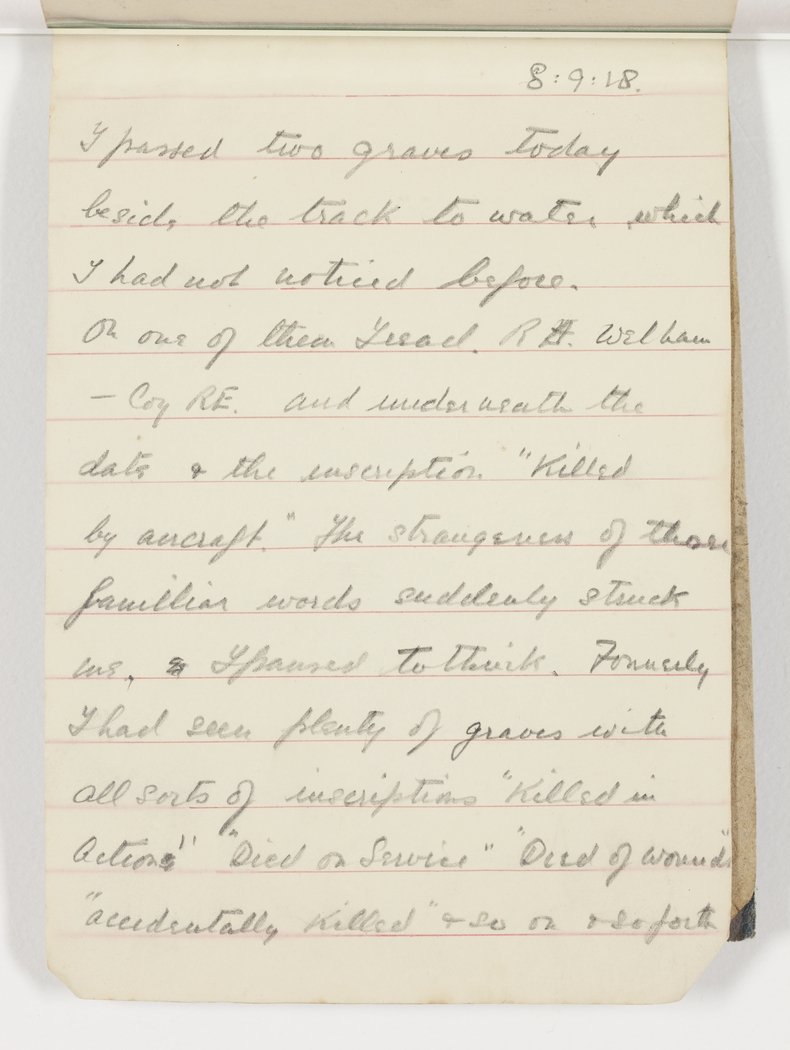 8:9:18.
I passed two graves today
beside the track to water which
I had not noticed before.
On one of them I read. R H. Welham
— Coy R.E. and underneath the
date & the inscription "Killed
by aircraft." The strangeness of those
familiar words suddenly struck
me, & I paused to think. Formerly
I had seen plenty of graves with
all sorts of inscriptions "Killed in
Action" "Died on Service" "Died of wounds"
"accidentally killed" & so on & so forth